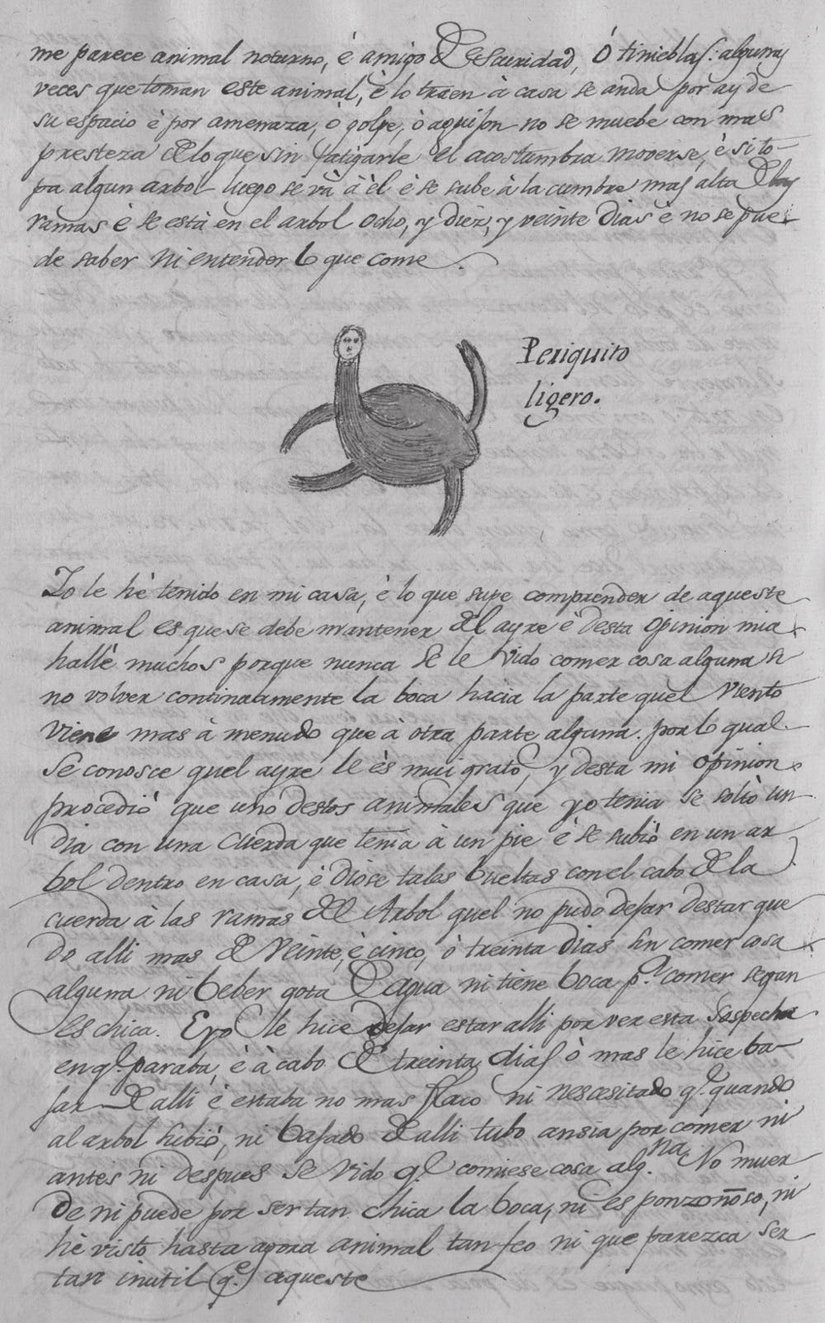 me parece animal noturno, è amigo de escuridad, ó tinieblas: algunas
veces que toman este animal, è lo traen à casa se anda por ay de
su espacio è por amenaza, ò golpe, ò aguijon no se muebe con mas
presteza de lo que sin fatigarle el acostumbra moverse, è si to-
pa algun arbol luego se và à èl è se sube à la cumbre mas alta de las
ramas è se està en el arbol ocho, y diez, y veinte dias è no se pue-
de saber ni entender lo que come.
Periquito
ligero.
Yo le hè tenido en mi casa, è lo que supe comprender de aqueste
animal es que se debe mantener del ayre è desta opinion mia
hallè muchos porque nunca se le vido comer cosa alguna si
no volver continuamente la boca hacia la parte quel viento
viene mas à menudo que à otra parte alguna. por lo qual
se conosce quel ayre le ès mui grato, y desta mi opinion
procediò que uno destos animales que yo tenia se soltò un
dia con una cuerda que tenia à un pie è se subiò en un ar-
bol dentro en casa, è diòse tales bueltas con el cabo de la
cuerda à las ramas del Arbol quel no pudo dejar destar que
do alli mas de veinte, è cinco, ò treinta dias sin comer cosa
alguna ni beber gota de agua ni tiene boca pa. comer segun
es chica. E yo le hice dejar estar alli por ver esta sospecha
en qe. paraba, è à cabo de treinta dias ò mas le hice ba-
jar de alli è estaba no mas flaco ni nescesitado qe. quando
al arbol subiò, ni bajado de alli tubo ansia por comer ni
antes ni despues se vido qe. comiese cosa algna. No muer
de ni puede por ser tan chica la boca, ni es ponzoñoso, ni
hè visto hasta agora animal tan feo ni que parezca ser
tan inutil qe. aqueste